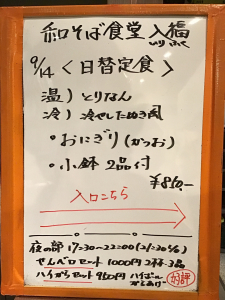 和そば食堂 入福
いり ふく
9/14 <日替定食>
温) とりなん
冷) 冷やしたぬき風
・おにぎり(かつお)
・小鉢 2品付
¥860-
入口こちら
夜の部 17:30-22:00 (21:30 %)
せんべロセット 1000円 2杯 2品
ハイからセット 960円 ハイボール からあげ
好評